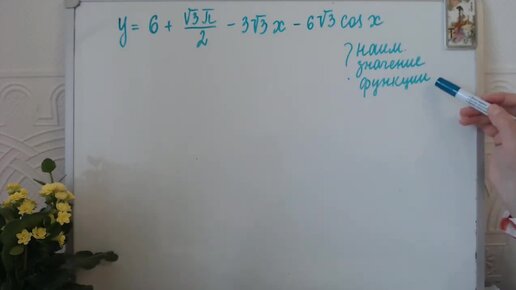 y = 6 + √3π/2 − 3√3x − 6√3 cos x
? наим.
значение
функции